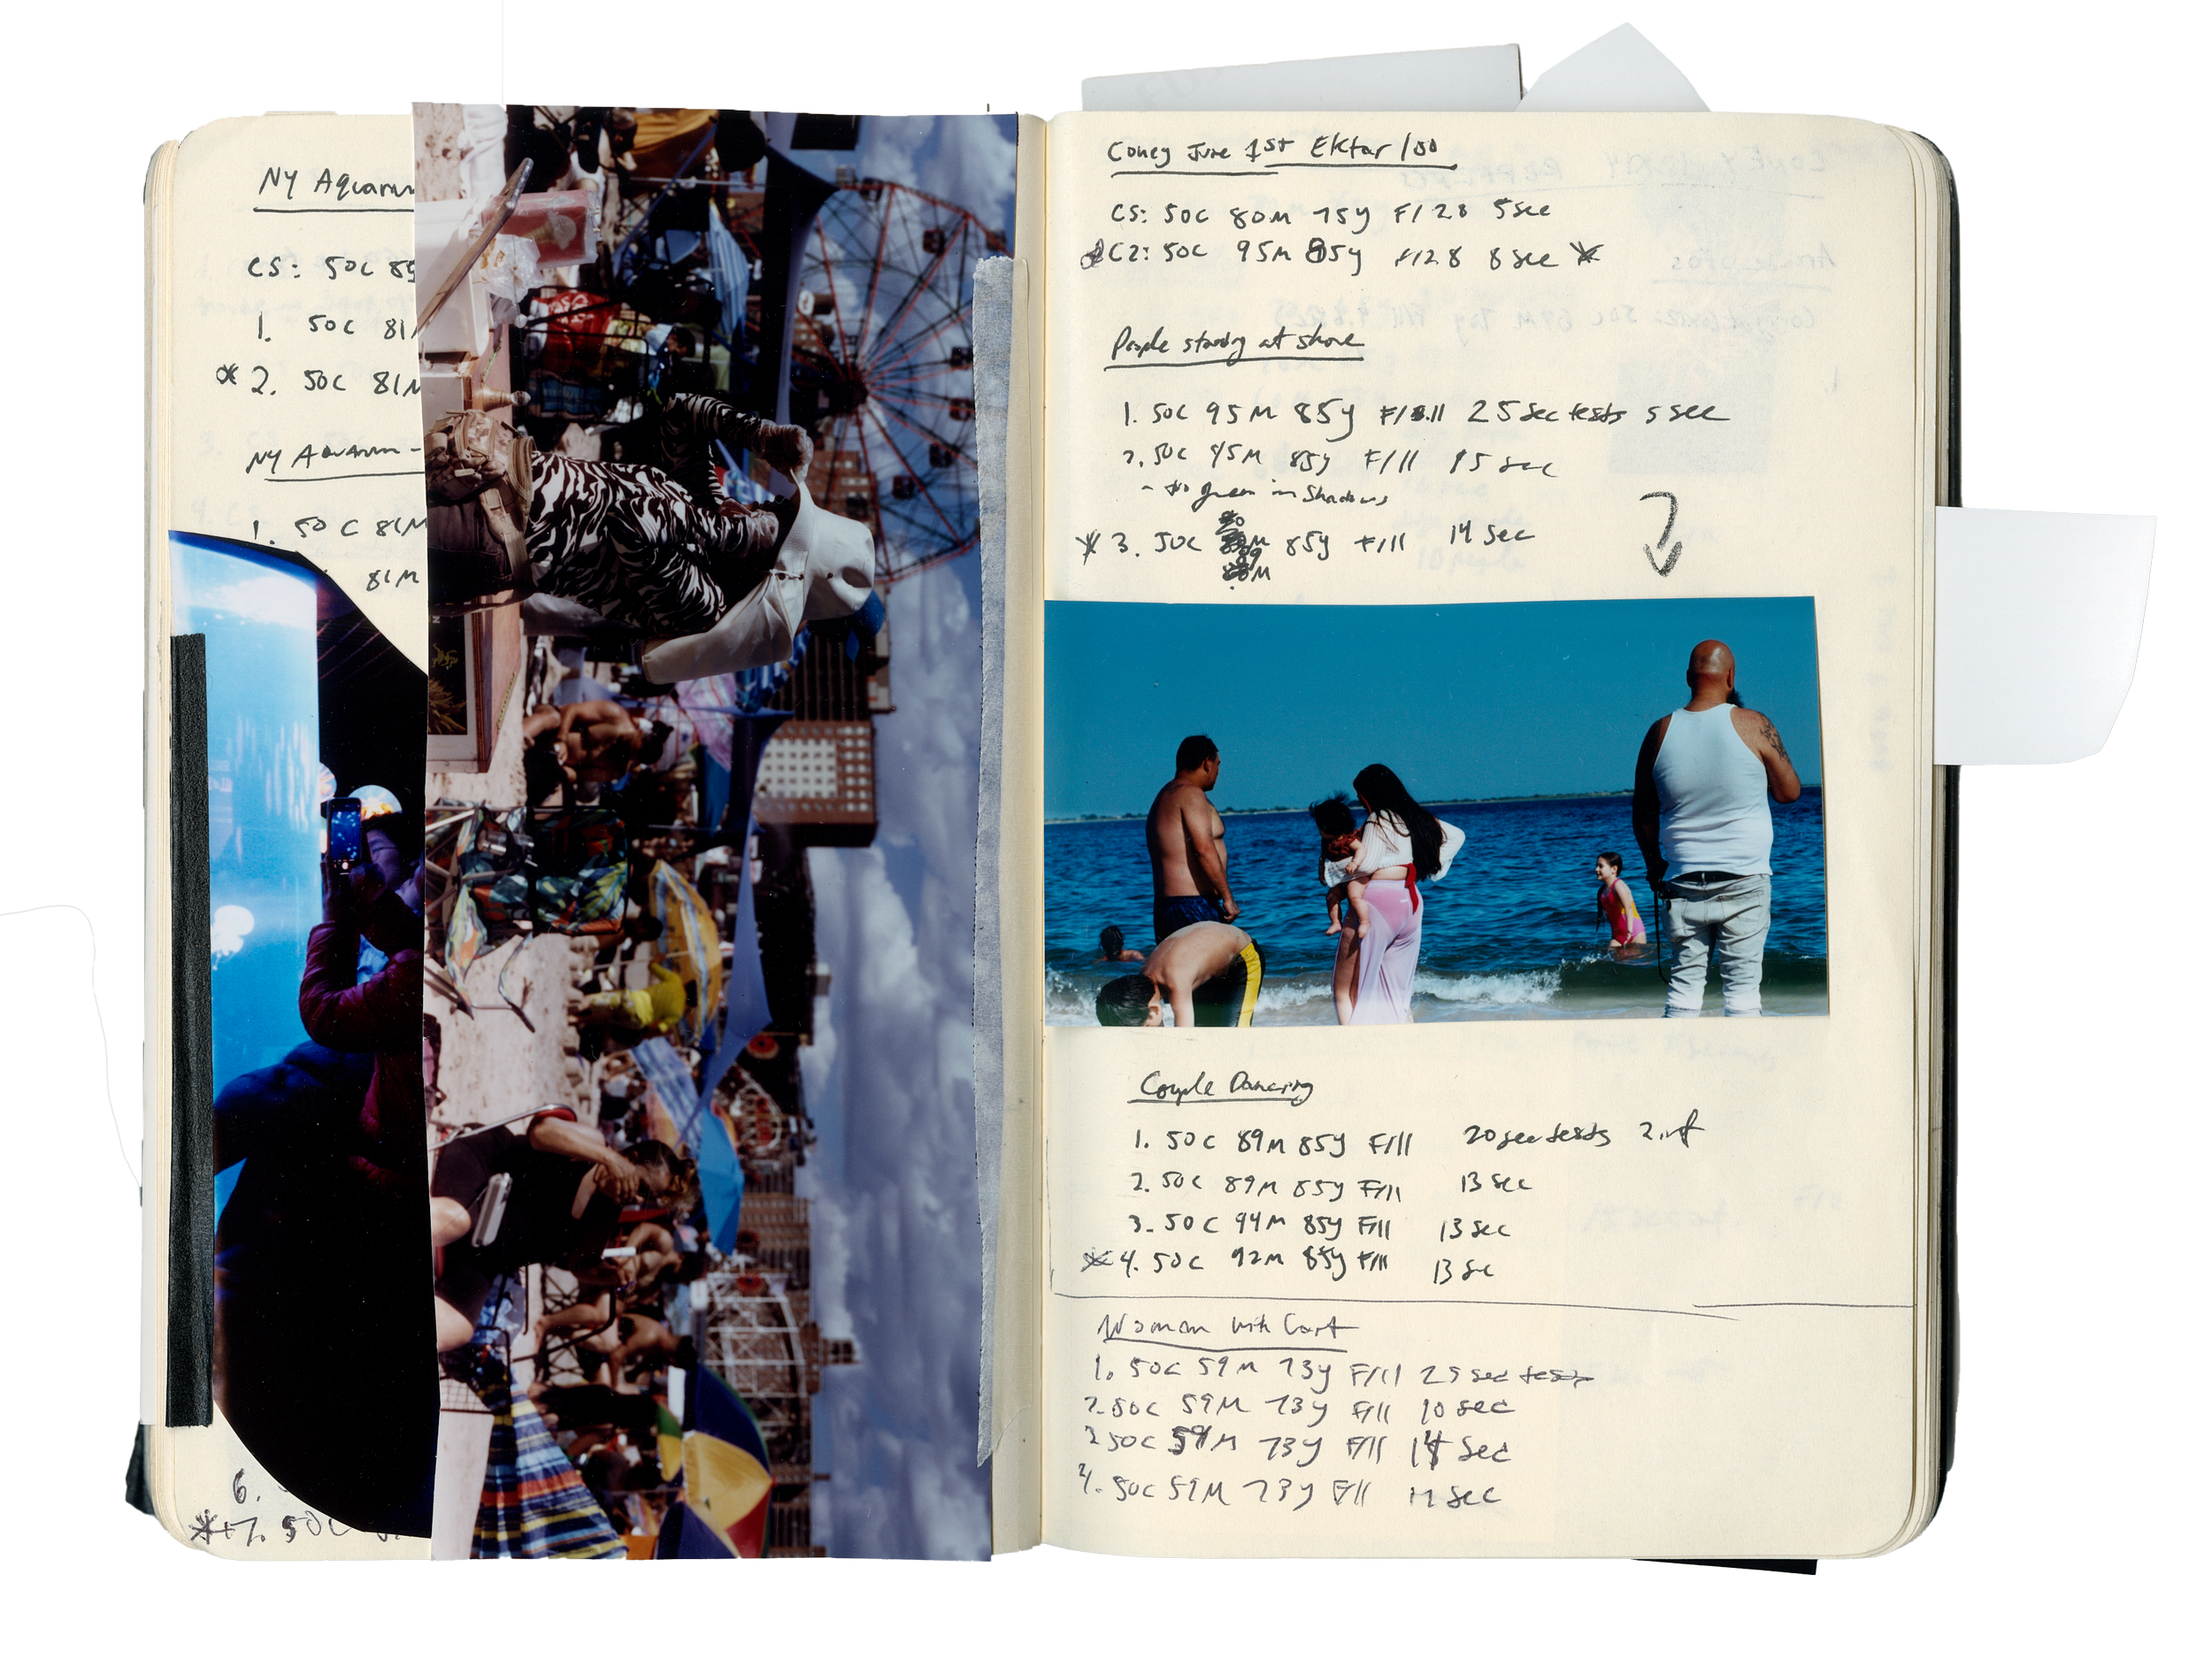 NY Aquarium
CS: 50C 85
1. 50C 81M
2. 50C 81M
NY Aquarium -
1. 50C 81M
81M
6.
7. 50C
Coney June 1st Ektar 100
CS: 50C 80M 75y F/2.8 5sec
C2: 50C 95M 85y F/2.8 8sec
People standing at shore
1. 50C 95M 85y F/11 25sec tests 5sec
2. 50C 95M 85y F/11 15sec
green in shadows
3. 50C 89M 85y F/11 14sec
Couple Dancing
1. 50C 89M 85y F/11 20sec tests
2. 50C 89M 85y F/11 13sec
3. 50C 94M 85y F/11 13sec
4. 50C 92M 85y F/11 13sec
Woman with Cart
1. 50C 59M 73y F/11 25sec tests
2. 50C 59M 73y F/11 10sec
3 50C 59M 73y F/11 14sec
4. 50C 59M 73y F/11 sec